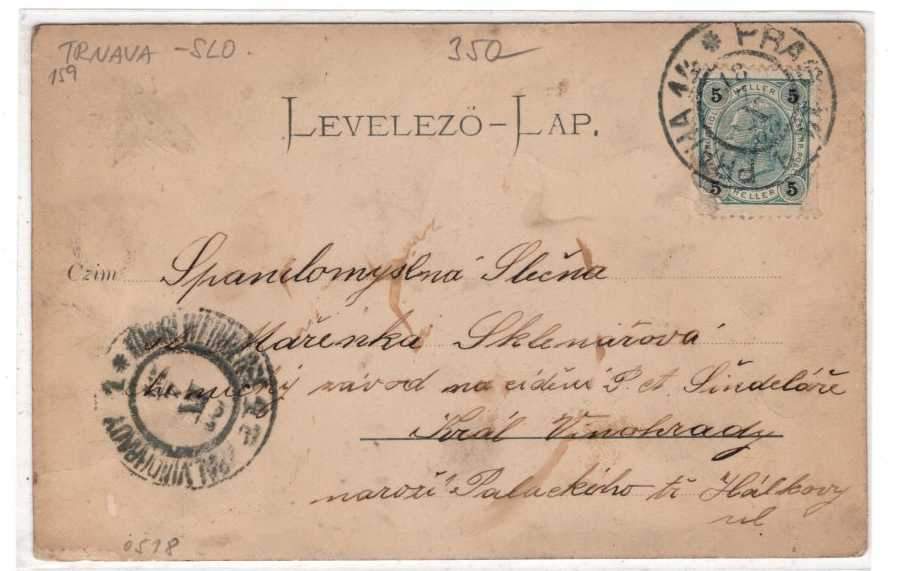 TRNAVA - SLO.
159
350
LEVELEZŐ-LAP.
PRAG PRAHA 1
5 HELLER 5
5 HELLER 5
Czim Spanilomyslná Slečna
Mařenka Sklenářová
chemický závod na cídění P. A. Šindeláře
Král Vinohrady
nároží Palackého tř Hálkovy
ul
KÖNIGL. WEINBERGE 1
KRÁL. VINOHRADY 1
0518